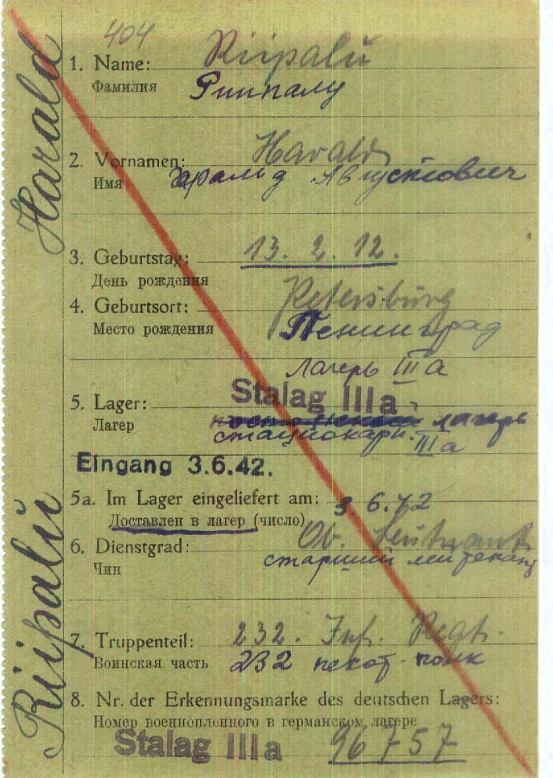 404
1. Name: Riipalu
Фамилия Риипалу
2. Vornamen: Harald
Имя Гаральд Августович
3. Geburtstag: 13. 2. 12.
День рождения
4. Geburtsort: Petersburg
Место рождения Ленинград
лагерь IIIа
5. Lager: Stalag III a
Лагерь лагерь
стационарн. IIIа
Eingang 3.6.42.
5a. Im Lager eingeliefert am: 3.6.42
Доставлен в лагерь (число)
6. Dienstgrad: Ob. Leutnant
Чин старший лейтенант
7. Truppenteil: 232. Inf. Regt.
Воинская часть 232 пехот. полк
8. Nr. der Erkennungsmarke des deutschen Lagers:
Номер военнопленного в германском лагере
Stalag III a 96757
Riipalu Harald